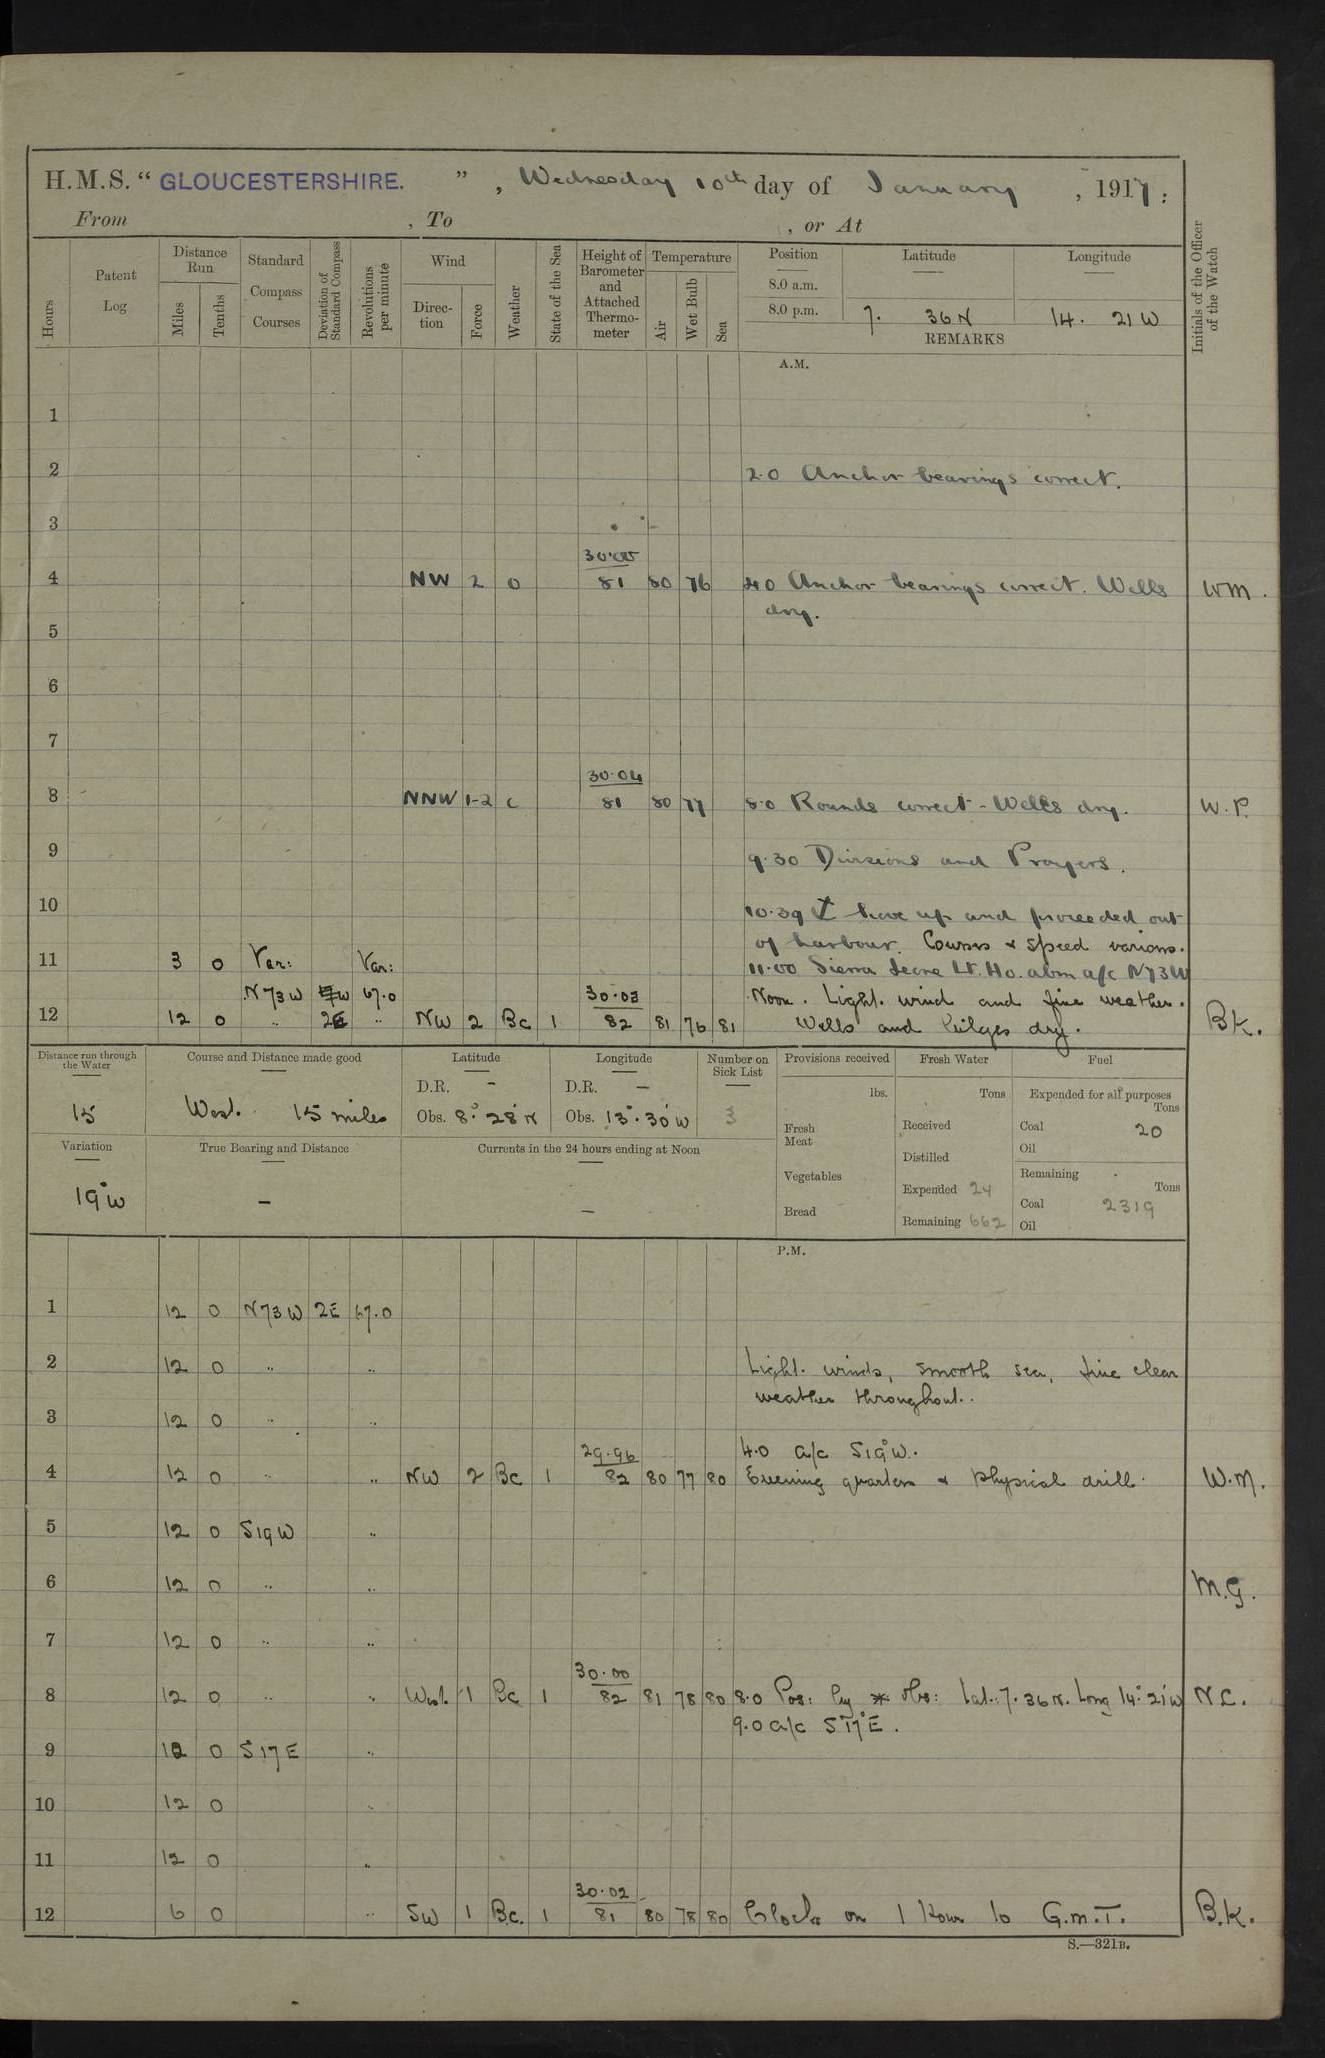 H.M.S. " GLOUCESTERSHIRE. " , Wednesday 10th day of January , 1917 :
From , To , or At
Hours
Patent Log
Distance Run
Miles
Tenths
Standard Compass Courses
Deviation of Standard Compass
Revolutions per minute
Wind
Direction
Force
Weather
State of the Sea
Height of Barometer and Attached Thermometer
Temperature
Air
Wet Bulb
Sea
Position
8.0 a.m.
8.0 p.m.
Latitude
7. 36 N
Longitude
14. 21 W
REMARKS
Initials of the Officer of the Watch
A.M.
1
2 2.0 Anchor bearings correct.
3
30.00
4 NW 2 o 81 80 76 4.0 Anchor bearings correct. Wells WM.
dry.
5
6
7
30.04
8 NNW 1-2 c 81 80 77 8.0 Rounds correct - Wells dry. W.P.
9 9.30 Divisions and Prayers.
10 10.39 ⚓ hove up and proceeded out
of harbour. Courses & speed various.
11 3 0 Var: Var: 11.00 Sierra Leone Lt. Ho. abm a/c N73W
N73W 67.0 30.03 Noon. Light wind and fine weather.
12 12 0 " 2E " NW 2 Bc 1 82 81 76 81 Wells and bilges dry. BK.
Distance run through the Water
15
Course and Distance made good
West. 15 miles
Latitude
D.R. -
Obs. 8° 28' N
Longitude
D.R. -
Obs. 13° 30' W
Number on Sick List
3
Provisions received
lbs.
Fresh Meat
Vegetables
Bread
Fresh Water
Tons
Received
Distilled
Expended 24
Remaining 662
Fuel
Expended for all purposes
Tons
Coal 20
Oil
Remaining
Tons
Coal 2319
Oil
Variation
19°W
True Bearing and Distance
-
Currents in the 24 hours ending at Noon
-
P.M.
1 12 0 N73W 2E 67.0
2 12 0 " " Light winds, smooth sea, fine clear
weather throughout.
3 12 0 " "
29.96 4.0 a/c S19°W.
4 12 0 " " NW 2 Bc 1 82 80 77 80 Evening quarters & physical drill. W.M.
5 12 0 S19W "
6 12 0 " " M.G.
7 12 0 " "
30.00
8 12 0 " " West. 1 Bc 1 82 81 78 80 8.0 Pos: by * obs: Lat: 7.36N. Long 14° 21'W N.C.
9.0 a/c S17°E.
9 12 0 S17E "
10 12 0 "
11 12 0 "
30.02
12 6 0 " SW 1 Bc. 1 81 80 78 80 Clocks on 1 hour to G.M.T. B.K.
S.—321B.